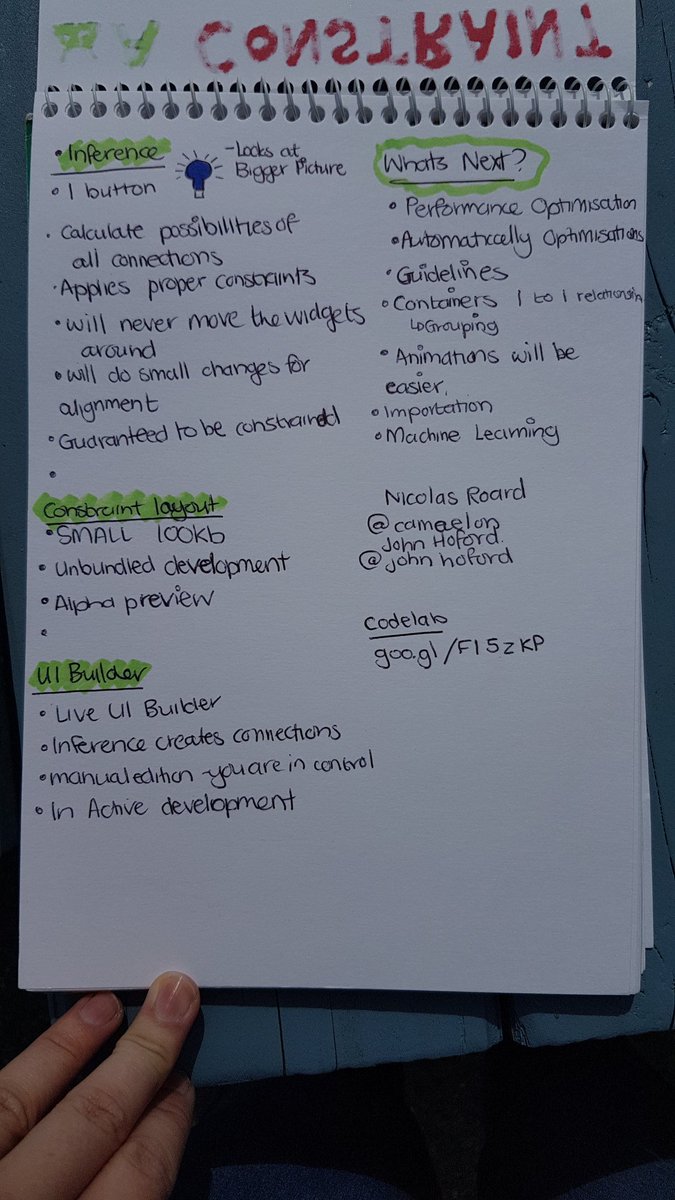 CONSTRAINT
• Inference
-Looks at
Bigger Picture
• 1 button
• Calculate possibilities of
all connections
• Applies proper constraints
• will never move the widgets
around
• will do small changes for
alignment
• Guaranteed to be constrained
•
Constraint layout
• SMALL 100kb
• Unbundled development
• Alpha preview
•
UI Builder
• Live UI Builder
• Inference creates connections
• manual edition - you are in control
• In Active development
Whats Next?
• Performance Optimisation
• Automatically Optimisations
• Guidelines
• Containers 1 to 1 relationship
↳ Grouping
• Animations will be
easier.
• Importation
• Machine Learning
Nicolas Roard
@camaelon
John Hoford.
@john hoford
Codelab
goo.gl/F15zKP